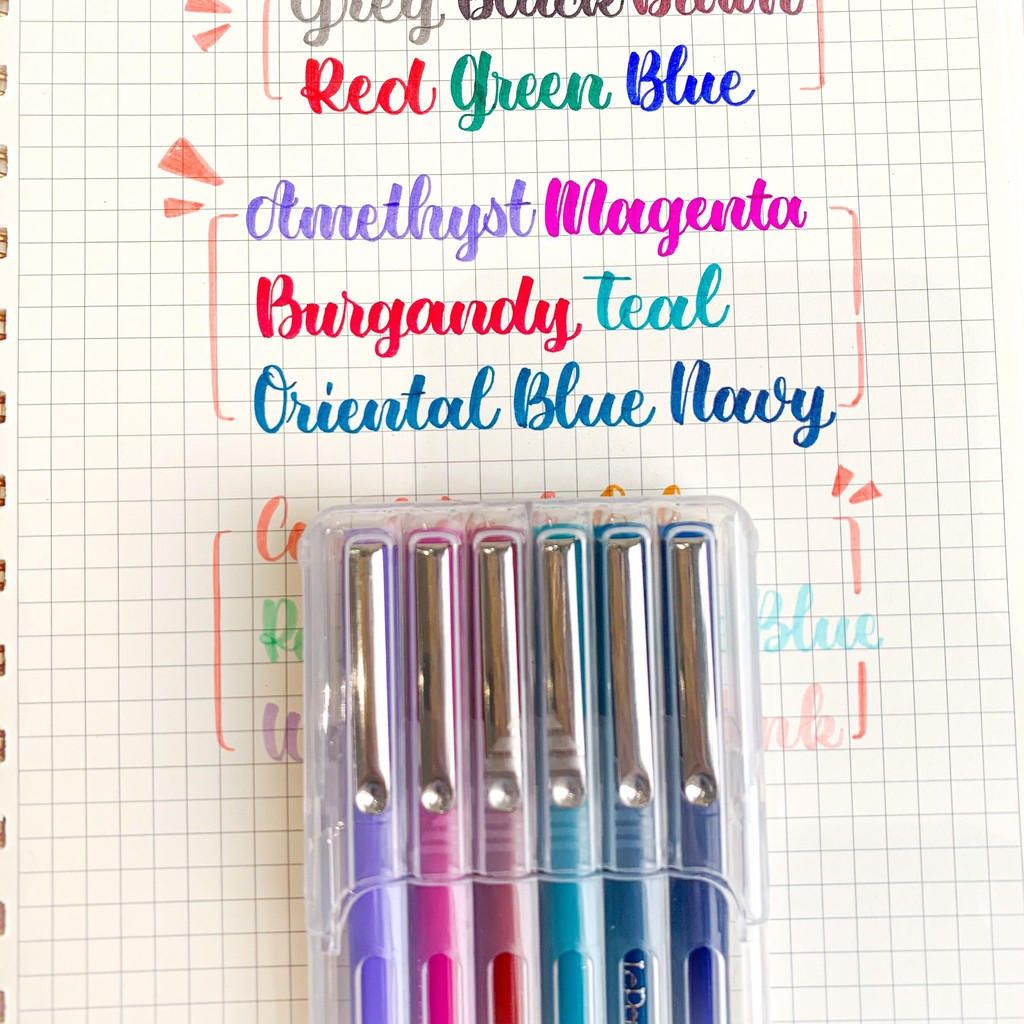 Grey Black Brown
Red Green Blue
Amethyst Magenta
Burgandy Teal
Oriental Blue Navy
Blue
LePen